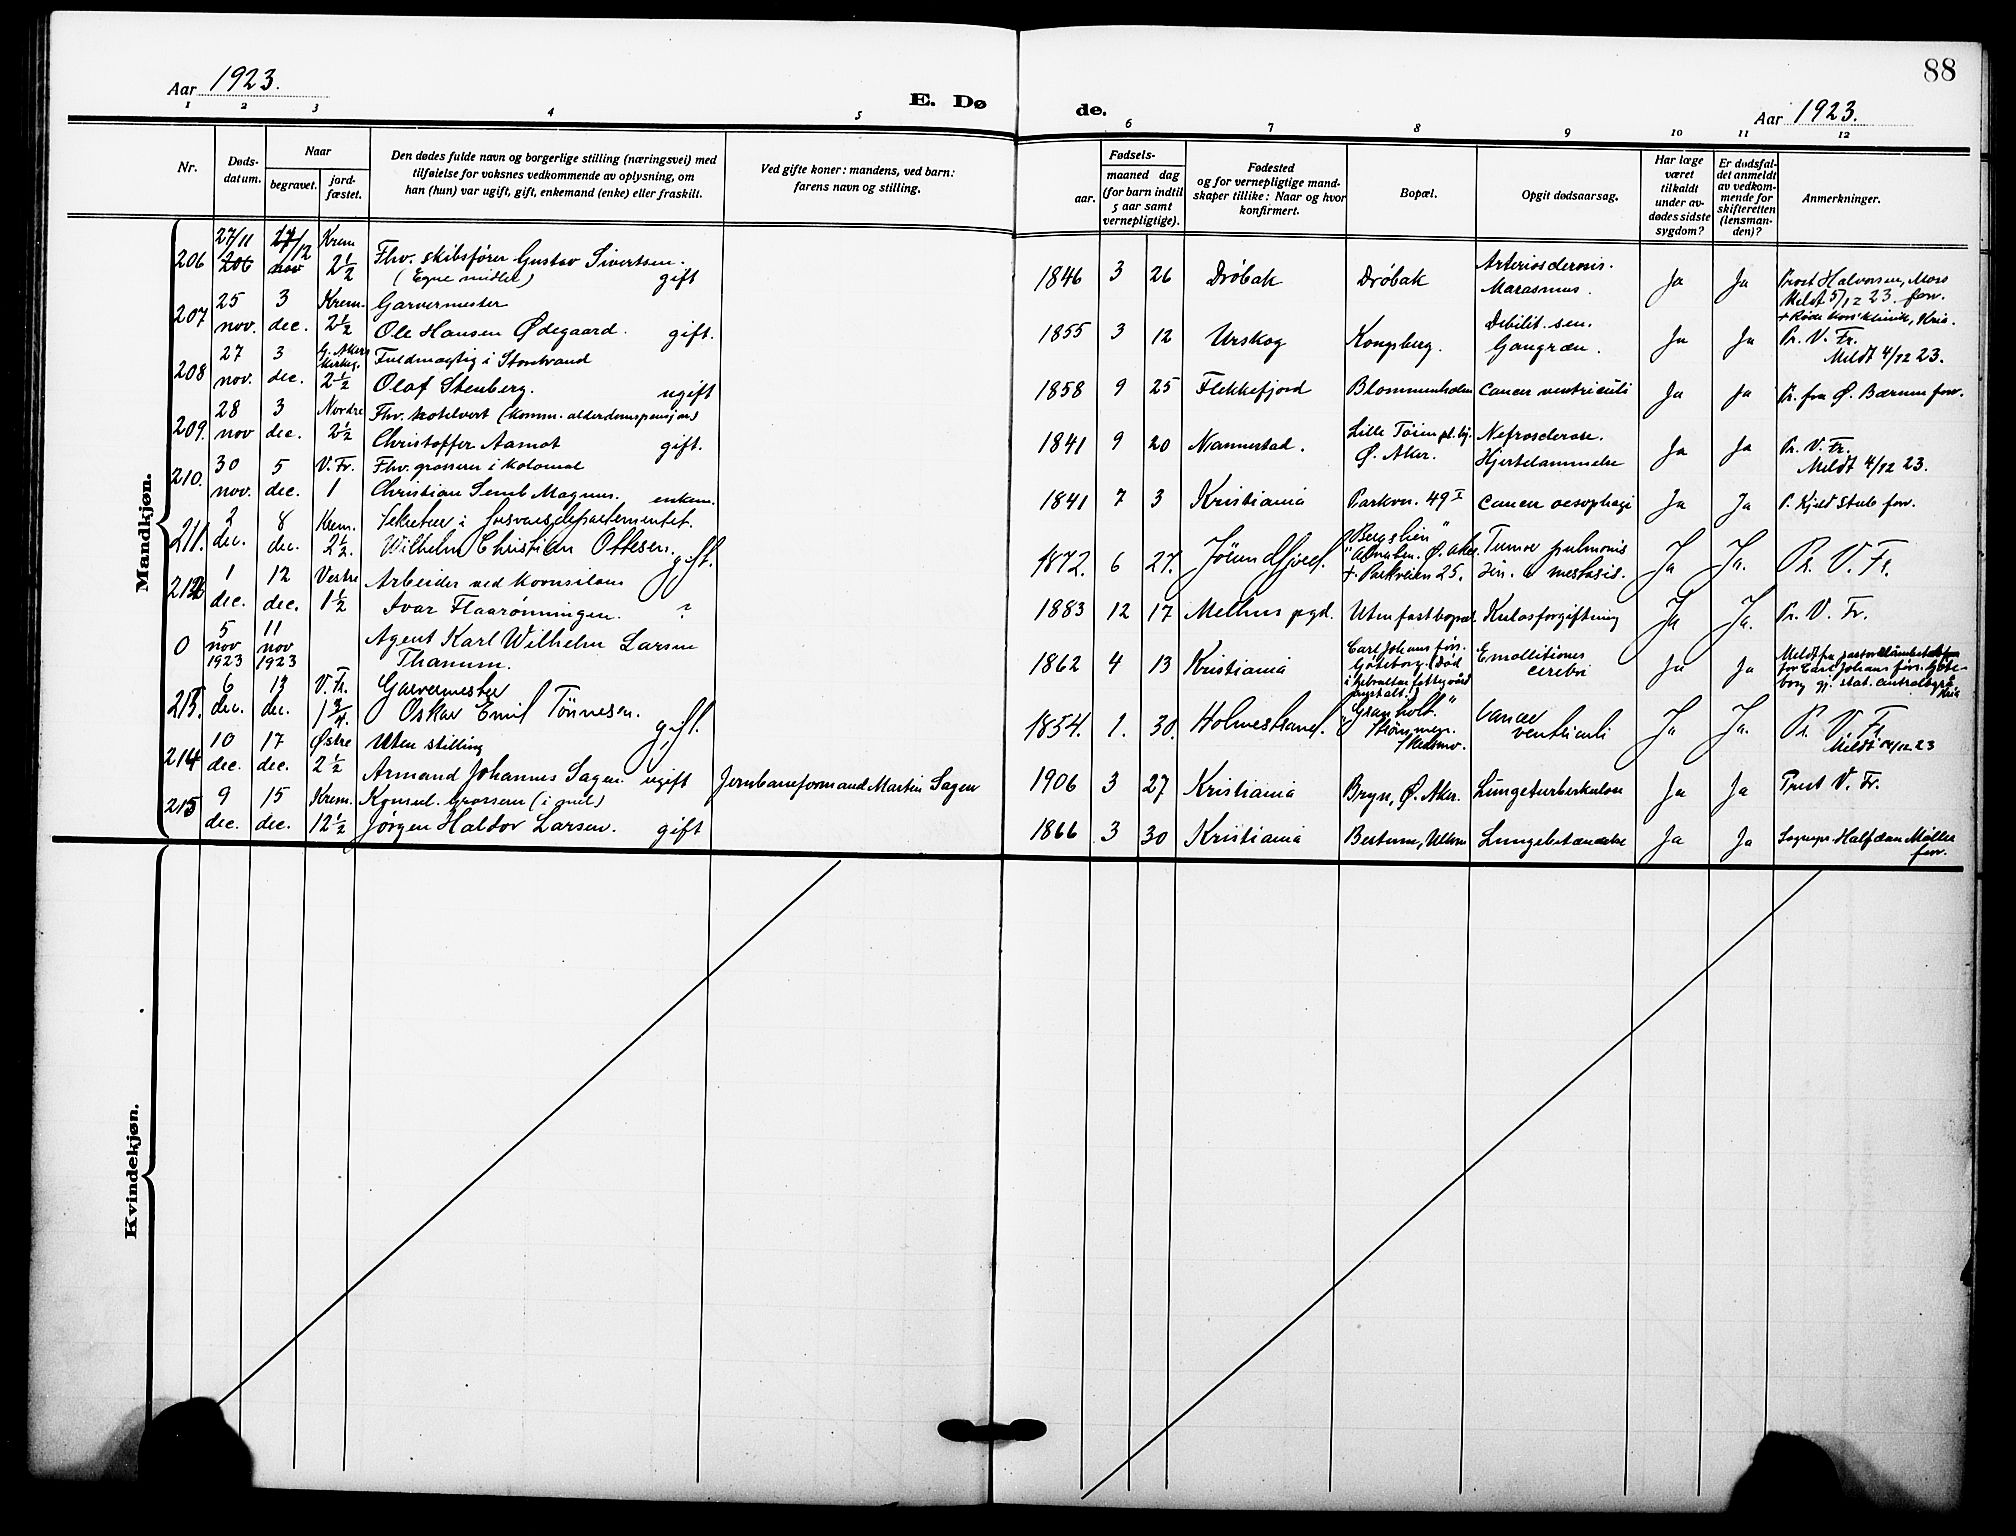 88
Aar 1923.
E. Dø de.
Aar 1923.
1 2 3 4 5 6 7 8 9 10 11 12
Nr.
Døds-
datum.
Naar
begravet.
jord-
fæstet.
Den dødes fulde navn og borgerlige stilling (næringsvei) med
tilføielse for voksnes vedkommende av oplysning, om
han (hun) var ugift, gift, enkemand (enke) eller fraskilt.
Ved gifte koner: mandens, ved barn:
farens navn og stilling.
Fødsels-
aar.
maaned dag
(for barn indtil
5 aar samt
vernepligtige).
Fødested
og for vernepligtige mand-
skaper tillike: Naar og hvor
konfirmert.
Bopæl.
Opgit dødsaarsag.
Har læge
været
tilkaldt
under av-
dødes sidste
sygdom?
Er dødsfal-
det anmeldt
av vedkom-
mende for
skifteretten
(lensman-
den)?
Anmerkninger.
Mandkjøn.
206 27/11 Krem 2½ Fhv. skibsfører Gustav Sivertsen.
(Egne midler) gift
1846 3 26 Drøbak Drøbak Arteriosclerosis.
Marasmus. Ja Ja Prost Halvorsen, Moss
Meldt 5/12 23. forv.
207 25 nov. 3 dec. Krem. 2½ Garvermester
Ole Hansen Ødegaard. gift.
1855 3 12 Urskog Kongsberg. Debilit. sen.
Gangræn. Ja Ja + Røde Kors' klinik, Kria.
Pr. V. Fr.
Meldt 4/12 23.
208 27 nov. 3 dec. V. Akers kirkeg. 2½ Fuldmægtig i Storebrand
Olaf Stenberg. ugift
1858 9 25 Flekkefjord Blommenholm Cancer ventriculi Ja Ja Pr. fra Ø. Bærum forv.
209. 28 nov 3 dec. Nordre 2½ Fhv. hotelvert (komm. alderdomspensjon)
Christoffer Aamot gift.
1841 9 20 Nannestad. Lille Tøien pl. hj.
Ø. Aker. Nefrosclerose.
Hjertelammelse Ja Ja Pr. V. Fr.
Meldt 4/12 23.
210. 30 nov. 5 dec. V. Fr. 1 Fhv. grosserer i kolonial
Christian Semb Magnus. enkem.
1841 7 3 Kristiania Parkvn. 49 I Cancer oesophagi Ja Ja P. Kjeld Stub forv.
211. 2 dec. 8 dec. Krem. 2½. Sekretær i forsvarsdepartementet.
Wilhelm Christian Ottesen. gift.
1872. 6 27. "Bergslien"
Alnabru. Ø. Aker.
+ Parkveien 25. Tumor pulmonis
sin. c metastasis. Ja Ja. Pr. V. Fr.
212 1 dec. 12 dec. Vestre 1½ Arbeider ved kornsiloen
Ivar Flaarønningen. ?
1883 12 17 Melhus pgd. Uten fast bopæl Kulosforgiftning Ja Ja. Pr. V. Fr.
0 5 nov 1923 11 nov 1923 Agent Karl Wilhelm Larsen
Thanum.
1862 4 13 Kristiania Carl Johans förs.
Göteborg (Död
i Gibraltar fattigvård
anstalt.) Emollitiones
cerebri Ja Ja Meldt fra pastorsämbetet
for Carl Johans förs. Göte-
borg gj. stat. centralbyrå
Kria
213. 6 dec. 13 dec. V. Fr. 1¾. Garvermester
Oskar Emil Tønnesen. gift.
1854. 1. 30. Holmestrand. "Granholt."
Strømmen.
Skedsmo. Cancer
ventriculi Ja Ja. Pr. V. Fr
214 10 dec. 17 dec. Østre 2½ Uten stilling
Armand Johannes Sagen. ugift Jernbaneformand Martin Sagen
1906 3 27 Kristiania Bryn, Ø. Aker. Lungetuberkulose Ja Ja Prest V. Fr.
215 9 dec. 15 dec. Krem. 12½ Konsul. Grosserer
Jørgen Haldor Larsen. gift
1866 3 30 Kristiania Bestum, Ullern Lungebetændelse Ja Ja Sognepr. Halfdan Møller
forv.
Kvindekjøn.